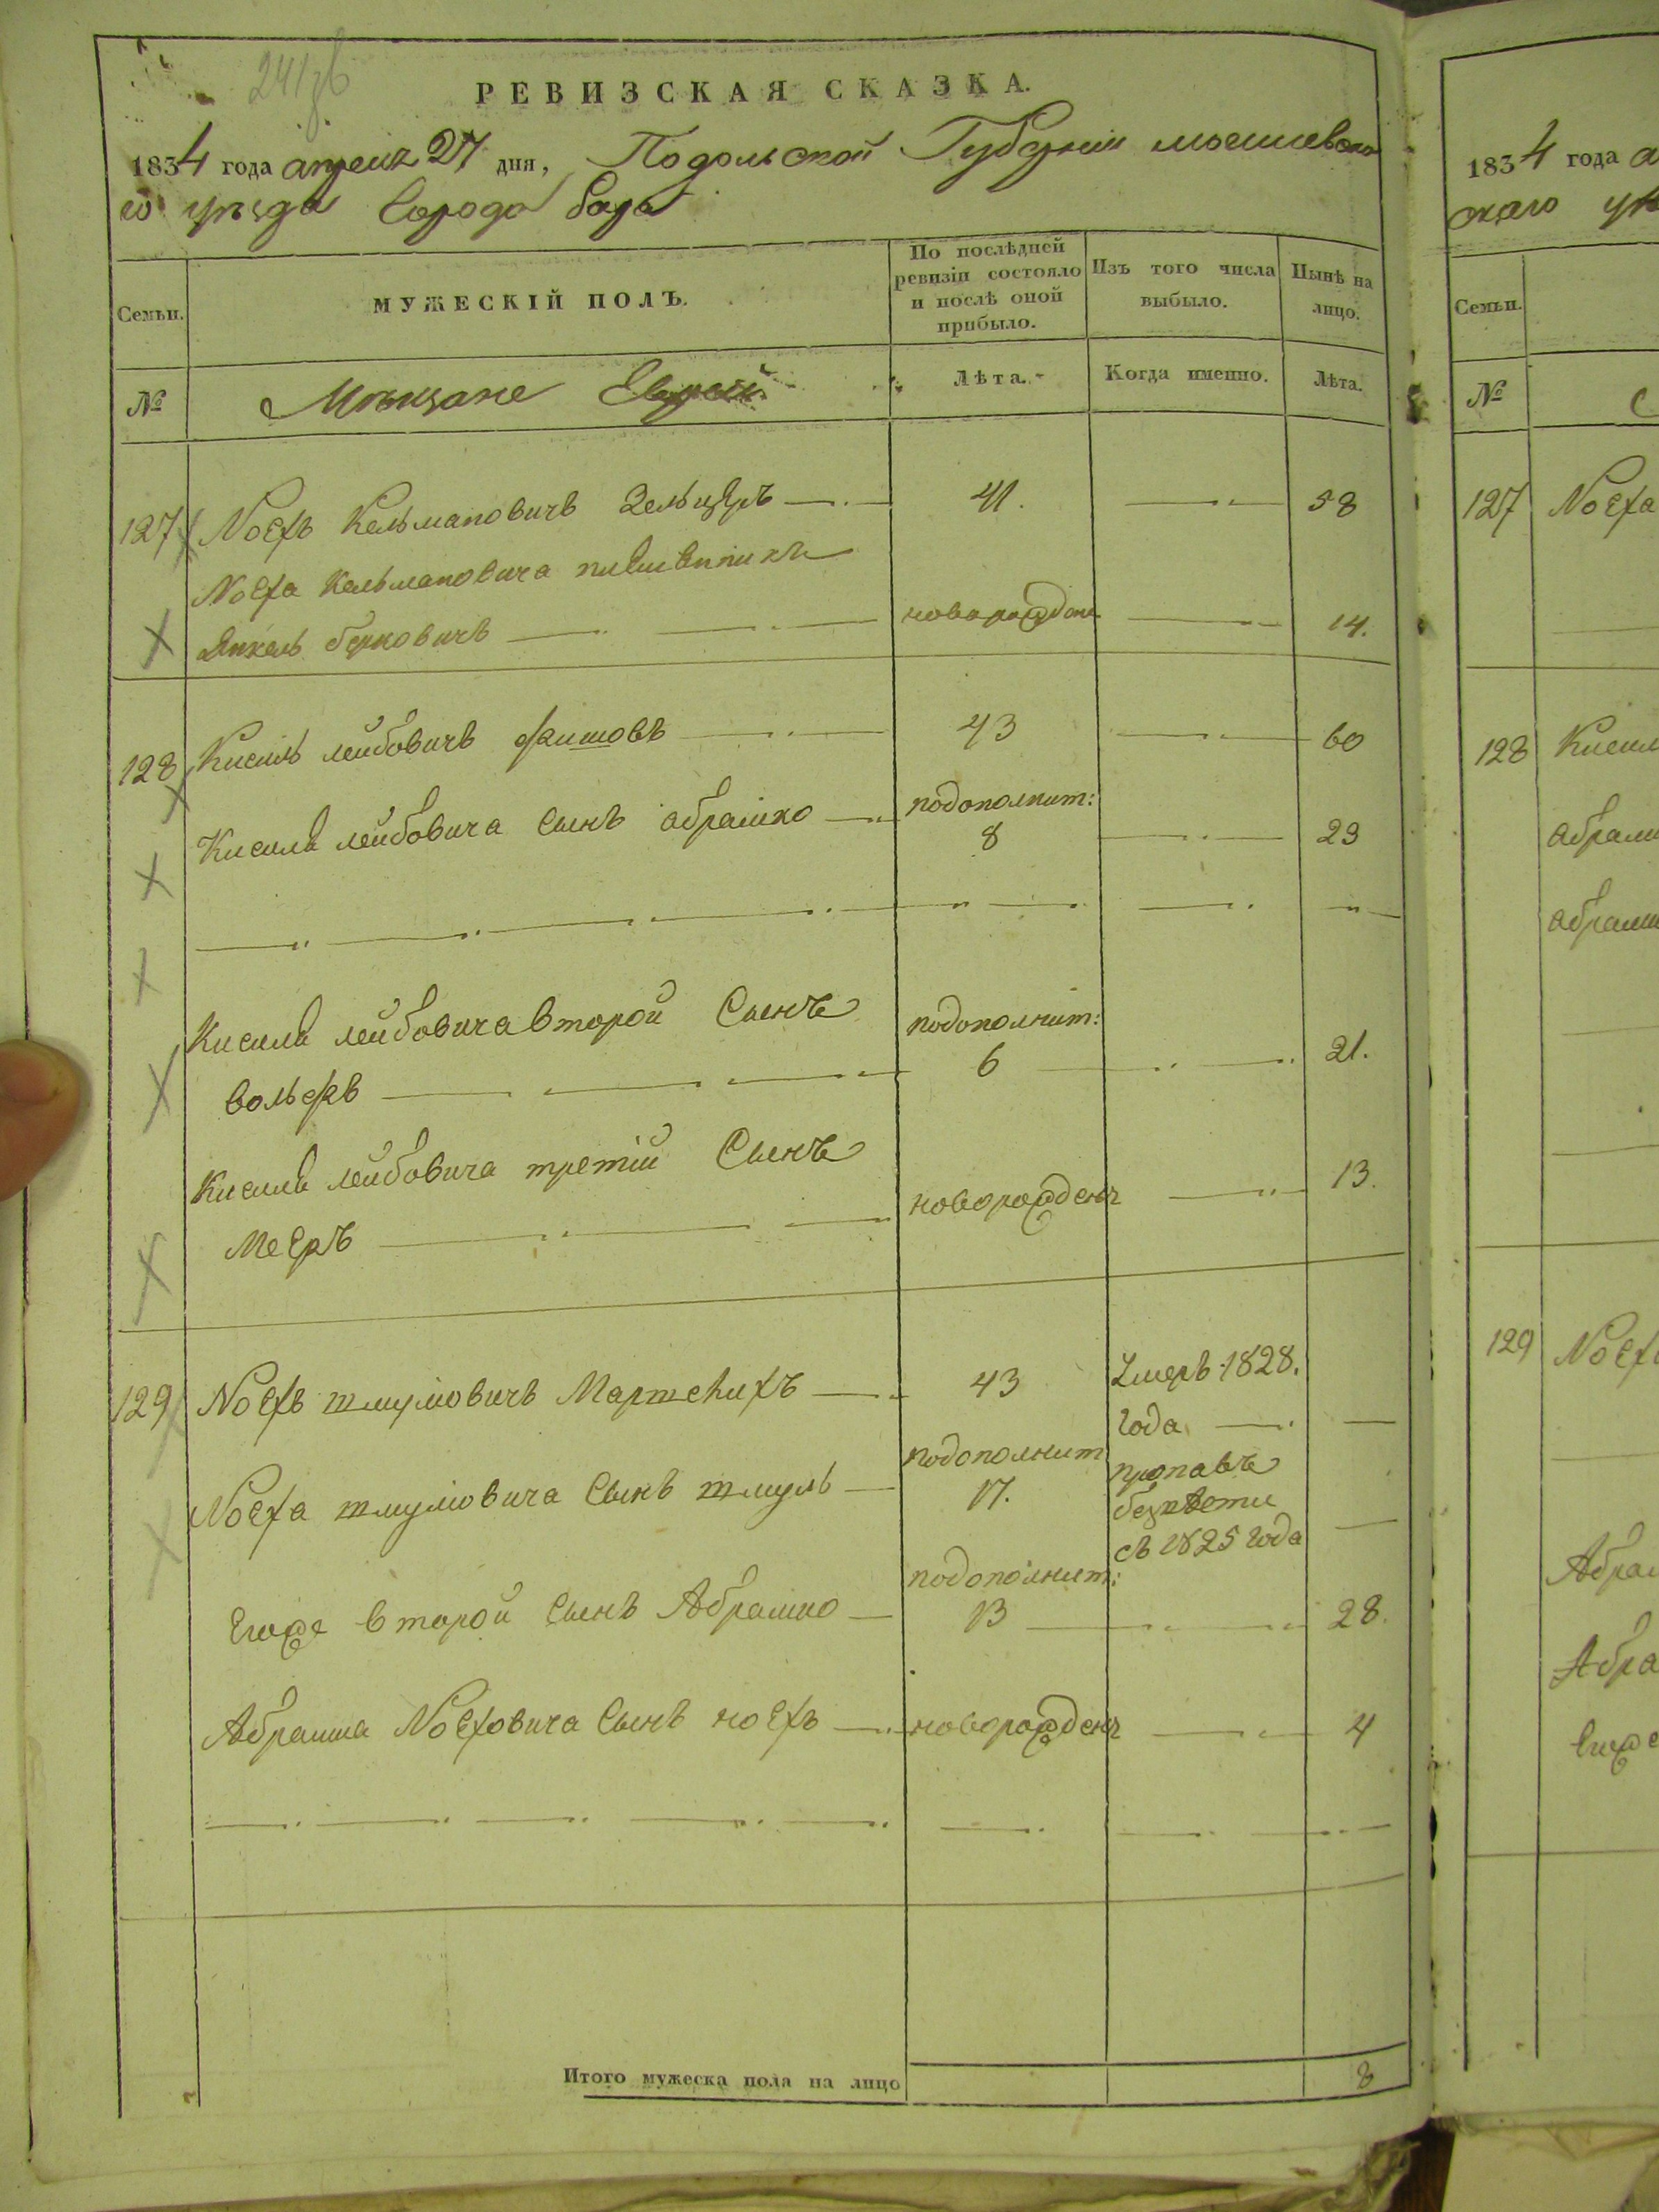 241зв
РЕВИЗСКАЯ СКАЗКА.
1834 года апреля 27 дня, Подольской Губернии
го уѣзда города Бара
Семьи.
МУЖЕСКІЙ ПОЛЪ.
По послѣдней ревизіи состояло и послѣ оной прибыло.
Изъ того числа выбыло.
Нынѣ на лицо.
№
Мѣщане Евреи
Лѣта.
Когда именно.
Лѣта.
127 Іосѣхъ Кельмановичъ Зельцеръ 41. 58
Іосѣха Кельмановича
Янкель Берковичъ новорожден 14.
128 Кисиль Лейбовичъ Фишовъ 43 60
Кисиля Лейбовича сынъ Абрамко подополнит: 8 23
Кисиля Лейбовича второй сынъ
Вольфъ подополнит: 6 21.
Кисиля Лейбовича третій сынъ
Мееръ новорожденъ 13.
129 Іосѣхъ Шмулiовичъ 43 Умеръ 1828.
года
Іосѣха Шмулiовича сынъ Шмуль подополнит 17. пропавъ
безвѣсти
съ 1825 года
Егоже второй сынъ Абрамко подополнит: 13 28.
Абрамка Іосѣховича сынъ Іосѣхъ новорожденъ 4
Итого мужеска пола на лицо 8
1834 года а
скаго уѣ
Семьи.
№
127 Іосѣха
128 Кисил
Абрам
Абрам
129 Іосѣх
Абрам
Абра
Егоже